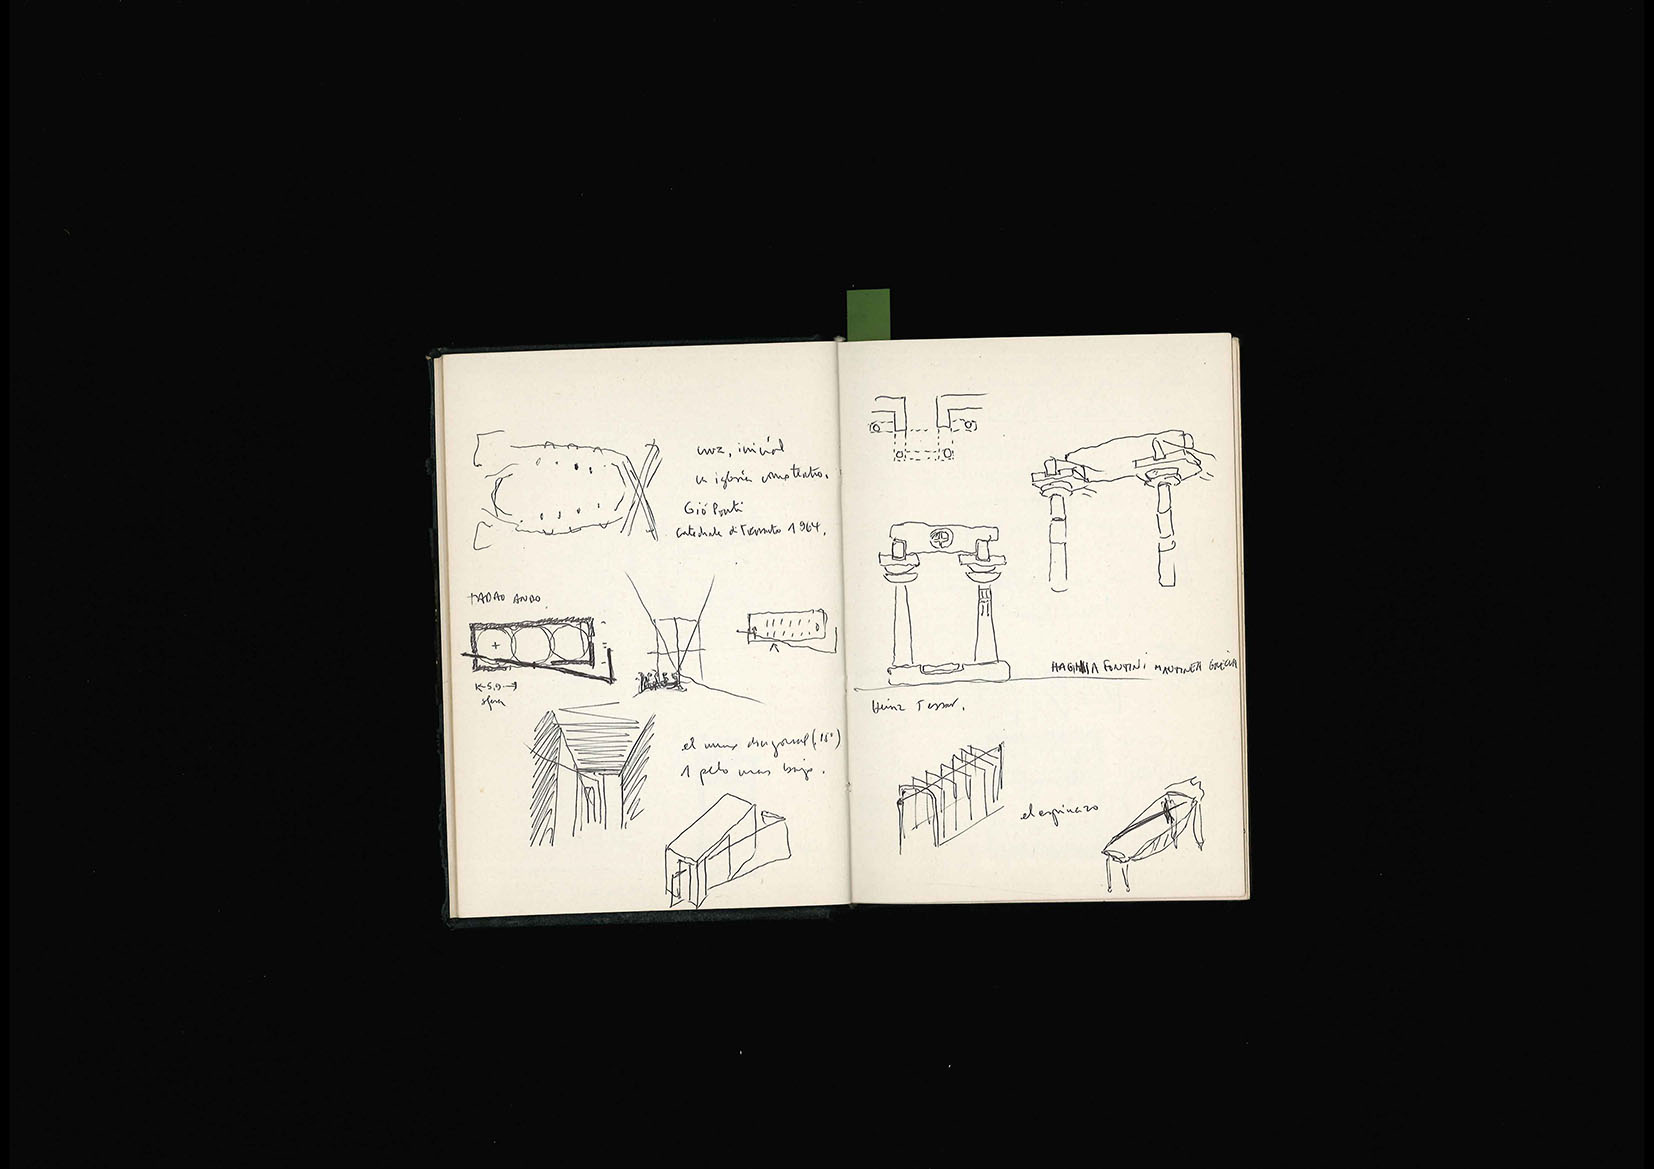 cruz, inicial
la iglesia como teatro.
Gió Ponti
Catedrale di Taranto 1964.
TADAO ANDO.
5,9
el muro diagonal (15°)
1 pelo mas bajo.
HAGHIA FONTINI MANTINEA GRECIA
Heinz Tesar.
el espinazo